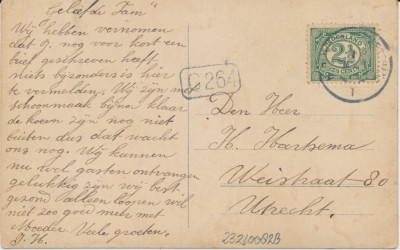 Geliefde Fam"
Wij hebben vernomen
dat G. nog voor kort een
brief geschreven heeft,
niets bijzonders is hier
te vermelden. Wij zijn met
schoonmaak bijna klaar
de koeien zijn nog niet
buiten dus dat wacht
ons nog. Wij kunnen
nu wel gasten ontvangen
gelukkig zijn wij best
gezond alleen loopen wil
niet zoo goed meer met
Moeder Vele groeten.
C 264
NEDERLAND
2½
CENT
1
Den Heer
H. Hartsema
Weistraat 80
Utrecht.
23210082B